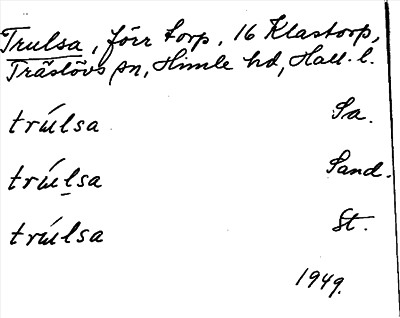 Trulsa, förr torp, 16 Klastorp,
Träslövs sn, Himle hd, Hall. l.
trúlsa Sa.
trúlsa Sand.
trúlsa St.
1949.